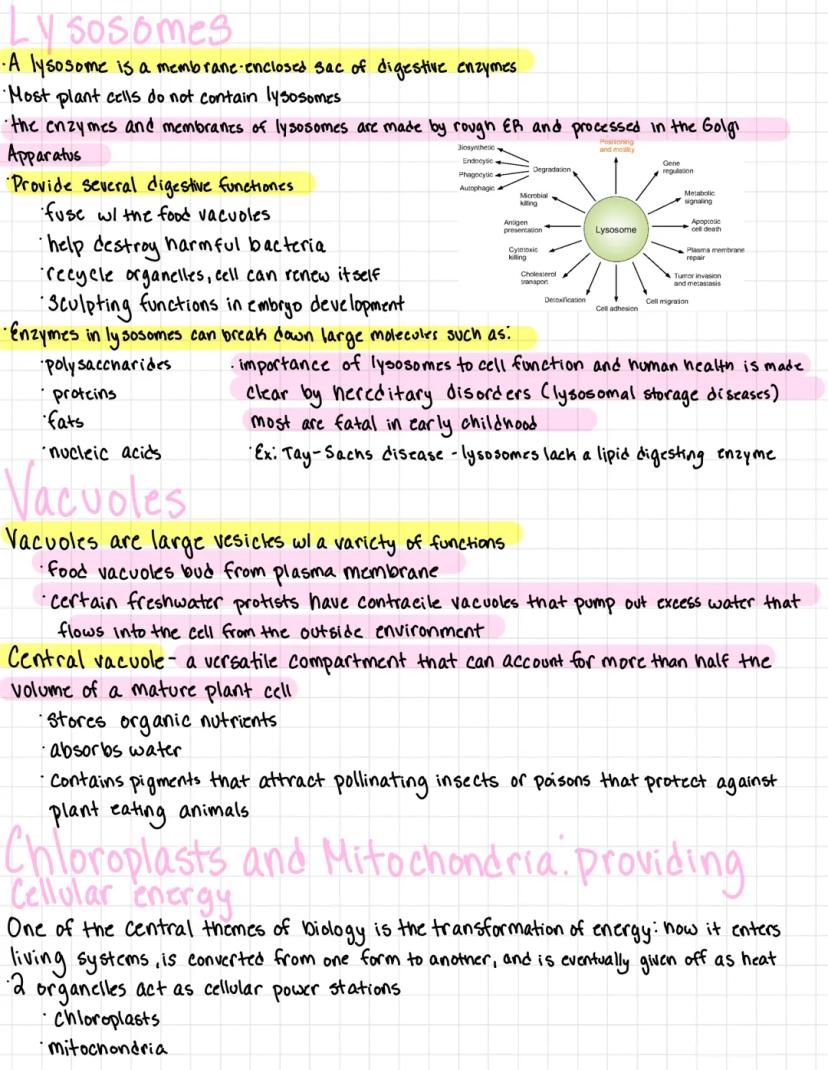 Lysosomes
·A lysosome is a membrane-enclosed sac of digestive enzymes
·Most plant cells do not contain lysosomes
·the enzymes and membranes of lysosomes are made by rough ER and processed in the Golgi
Apparatus
·Provide several digestive functiones
·fuse w/ the food vacuoles
·help destroy harmful bacteria
·recycle organelles, cell can renew itself
·sculpting functions in embryo development
Biosynthetic
Endocytic
Phagocytic
Autophagic
Degradation
Positioning
and motility
Gene
regulation
Microbial
killing
Metabolic
signaling
Antigen
presentation
Lysosome
Apoptotic
cell death
Cytotoxic
killing
Plasma membrane
repair
Cholesterol
transport
Tumor invasion
and metastasis
Detoxification
Cell adhesion
Cell migration
·Enzymes in lysosomes can break down large molecules such as:
·polysaccharides
·proteins
·fats
·nucleic acids
·importance of lysosomes to cell function and human health is made
clear by hereditary disorders (lysosomal storage diseases)
most are fatal in early childhood
·Ex: Tay-Sachs disease - lysosomes lack a lipid digesting enzyme
Vacuoles
Vacuoles are large vesicles w/ a variety of functions
·food vacuoles bud from plasma membrane
·certain freshwater protists have contracile vacuoles that pump out excess water that
flows into the cell from the outside environment
Central vacuole - a versatile compartment that can account for more than half the
volume of a mature plant cell
·stores organic nutrients
·absorbs water
·contains pigments that attract pollinating insects or poisons that protect against
plant eating animals
Chloroplasts and Mitochondria: providing
cellular energy
One of the central themes of biology is the transformation of energy: how it enters
living systems, is converted from one form to another, and is eventually given off as heat
·2 organelles act as cellular power stations
·chloroplasts
·mitochondria